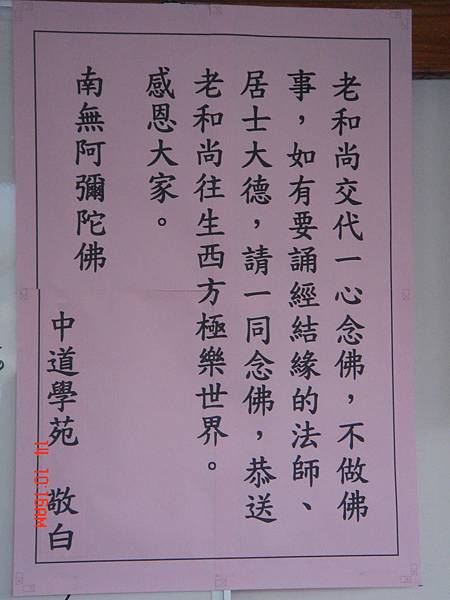 老和尚交代一心念佛，不做佛
事，如有要誦經結緣的法師、
居士大德，請一同念佛，恭送
老和尚往生西方極樂世界。
感恩大家。
南無阿彌陀佛
中道學苑　敬白